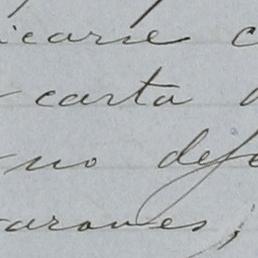 icarse c
carta
no defe
arones,